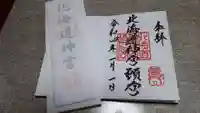 奉拝
北海道神宮頓宮
令和 年 一月一日
北海道神宮